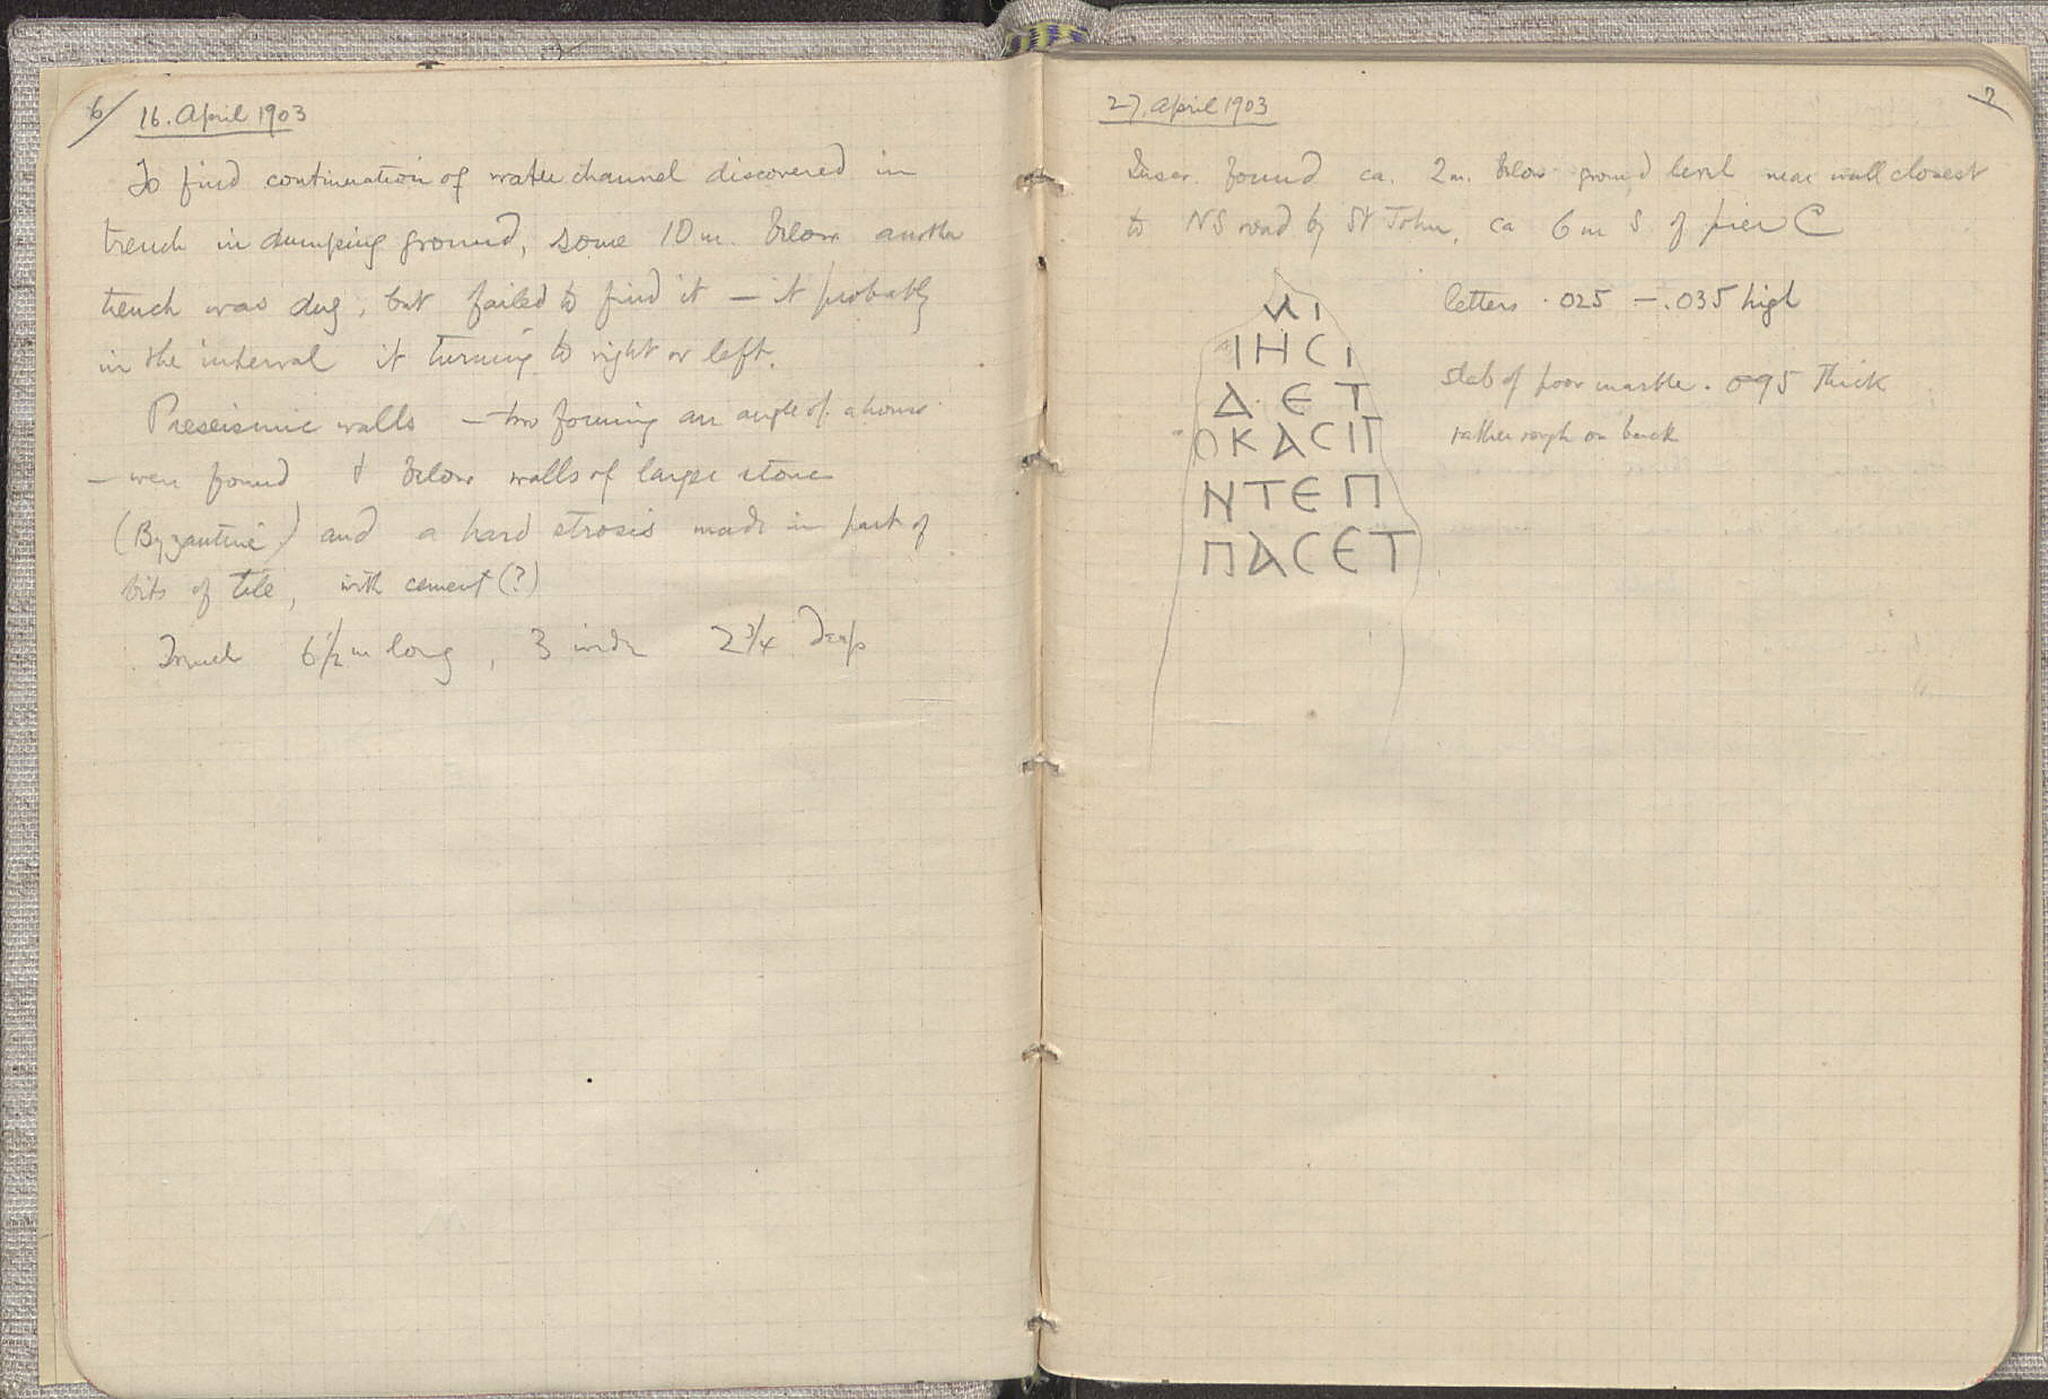 6/ 16. April 1903
To find continuation of water channel discovered in
trench in dumping ground, some 10 m. below another
trench was dug, but failed to find it — it probably
in the interval it turning to right or left.
Preseismic walls — two forming an angle of a house
— were found & below walls of large stone
(Byzantine) and a hard strosis made in part of
bits of tile, with cement (?)
Trench 6 1/2 m long, 3 wide 2 3/4 deep
27. April 1903
7
Inscr. found ca. 2 m. below ground level near wall closest
to NS road by St John, ca 6 m S of pier C
letters .025 — .035 high
ΙΗϹΙ
Δ Ε Τ
slab of poor marble .095 thick
ΟΚΑϹΙΠ
rather rough on back
ΝΤΕΠ
ΠΑϹΕΤ